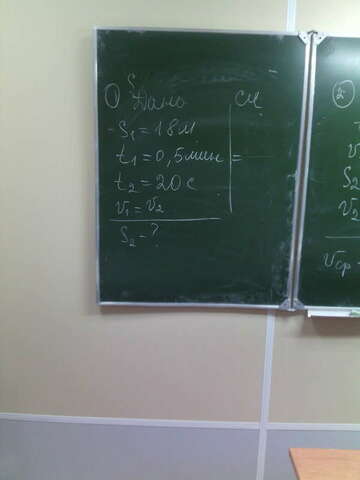 ① Дано СИ
S₁ = 18 м
t₁ = 0,5 мин =
t₂ = 20 с
v₁ = v₂
S₂ - ?
②
S₂
v₂
vср -